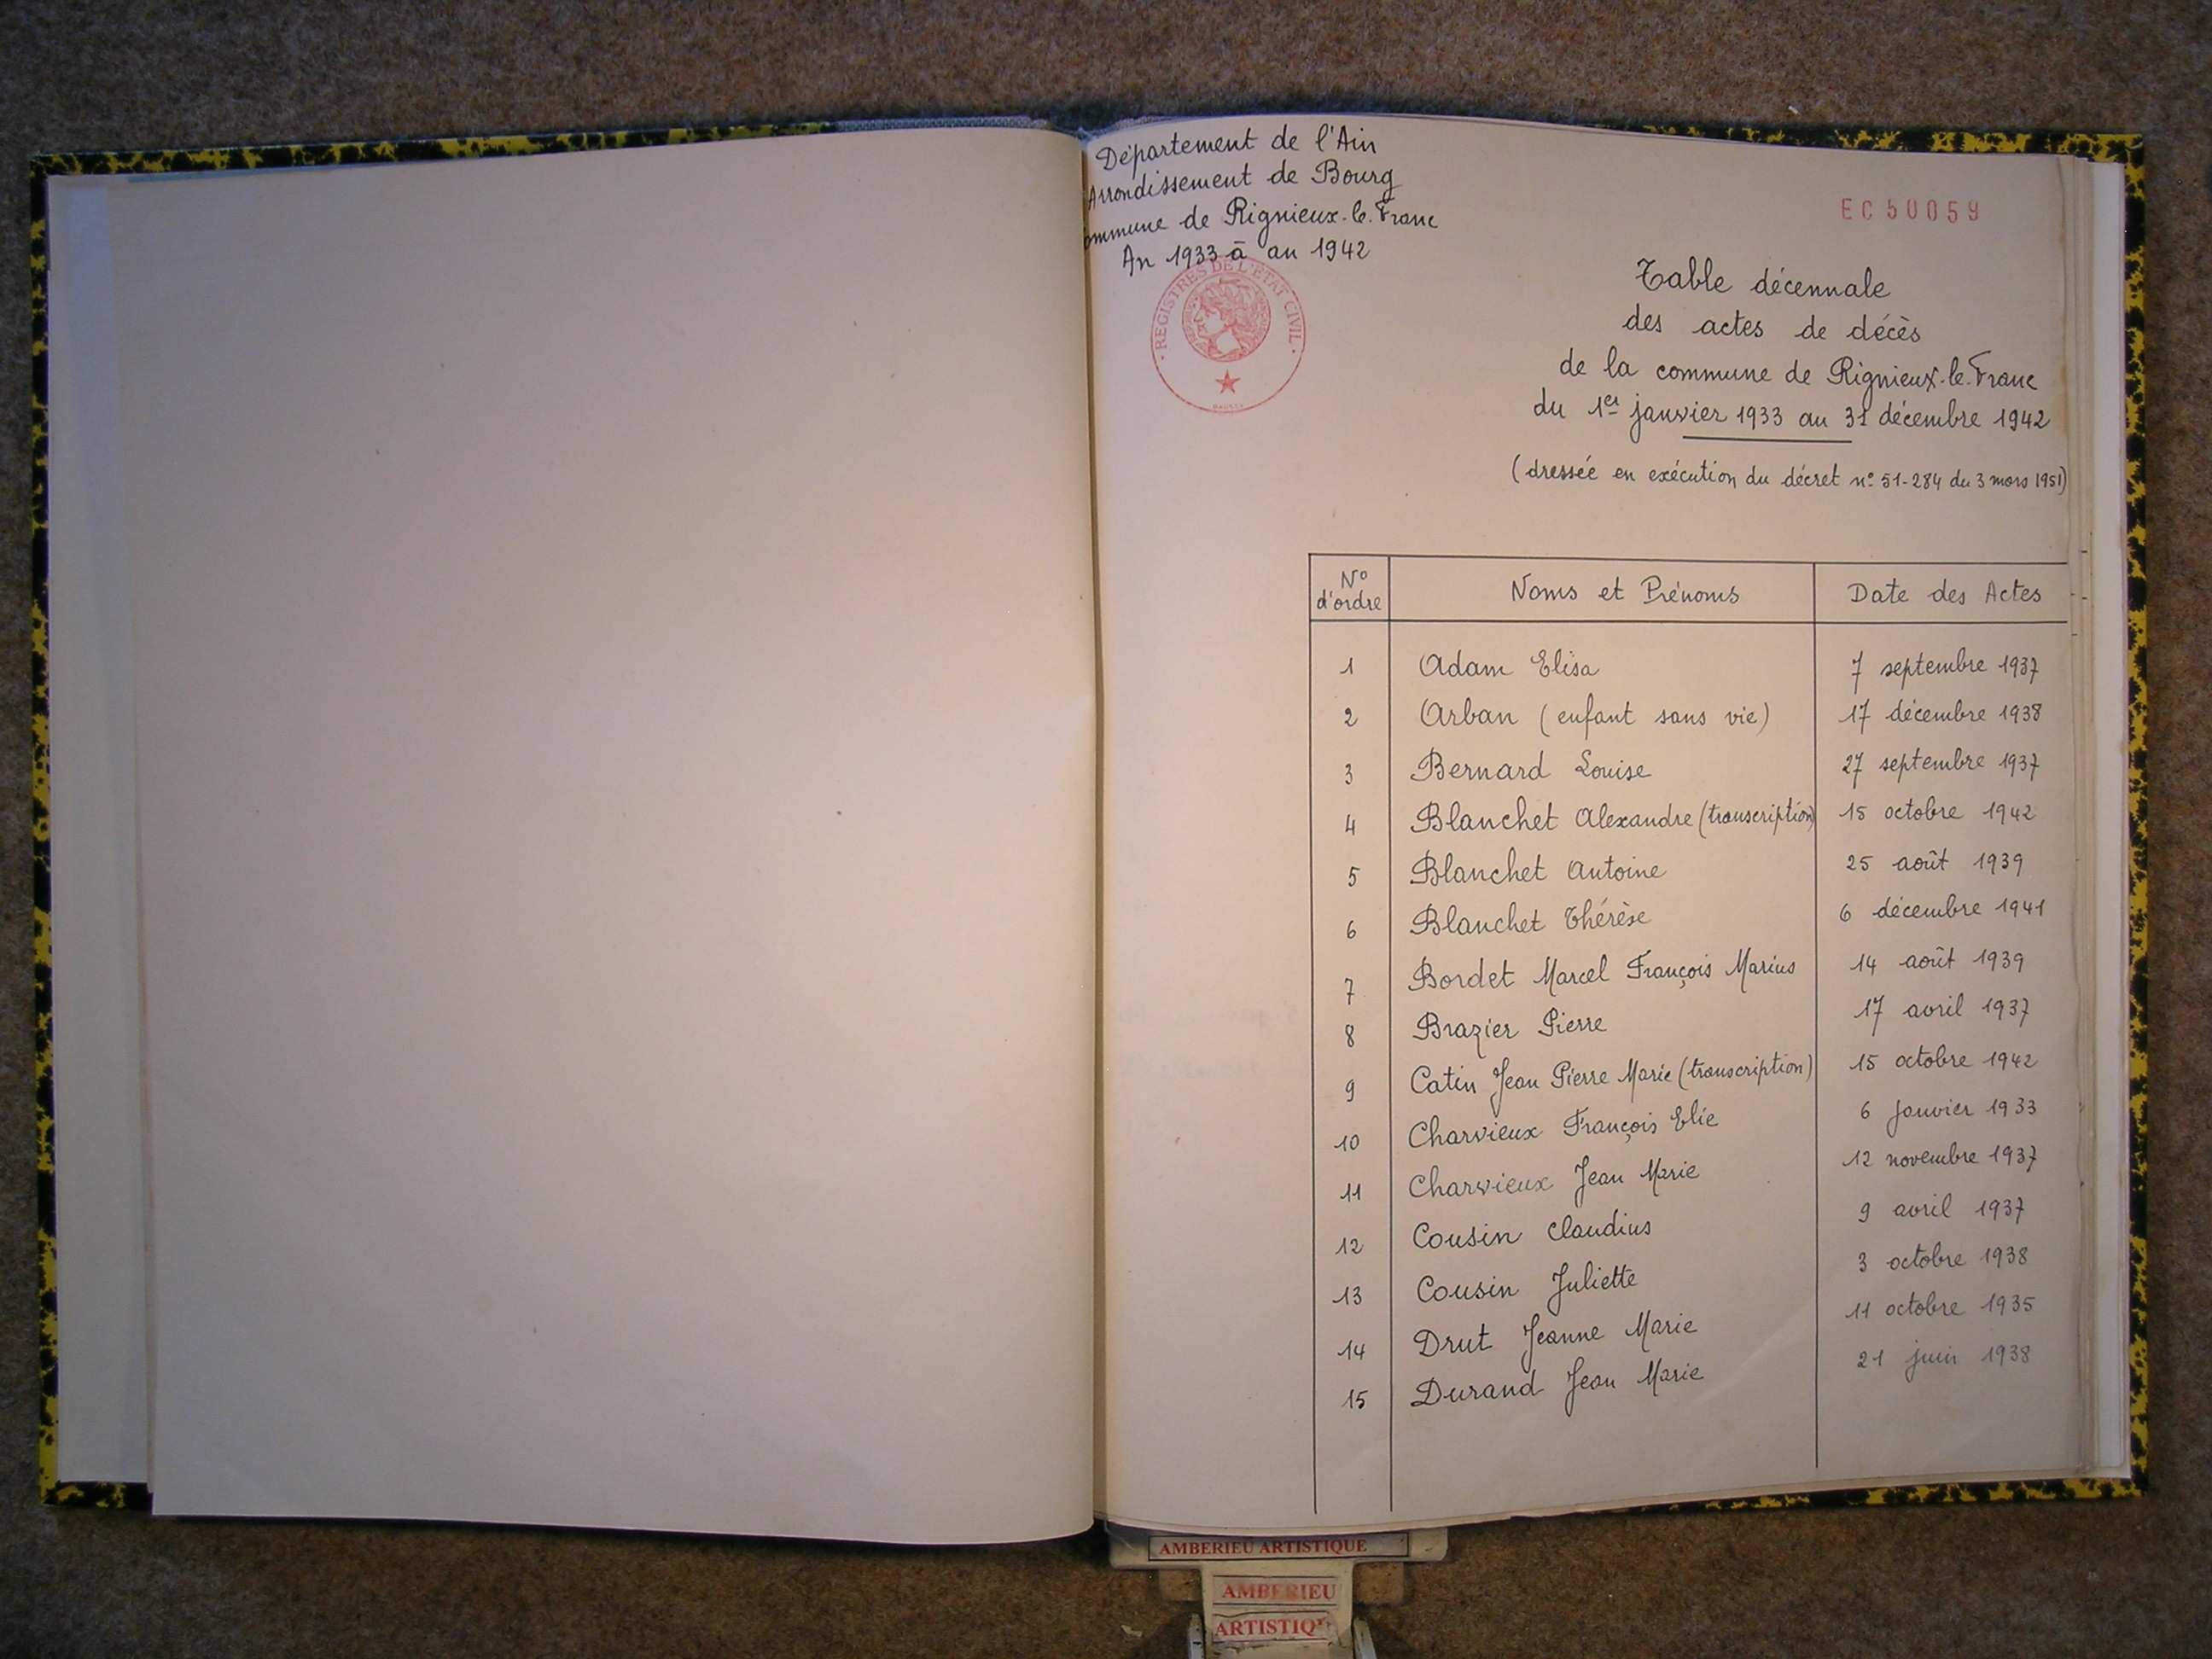 Département de l'Ain
Arrondissement de Bourg
ommune de Rignieux-le-Franc
An 1933 à an 1942
REGISTRES DE L'ÉTAT CIVIL
EC50059
Table décennale
des actes de décès
de la commune de Rignieux-le-Franc
du 1er janvier 1933 au 31 décembre 1942
(dressée en exécution du décret n° 51-284 du 3 mars 1951)
N° d'ordre Noms et Prénoms Date des Actes
1 Adam Elisa 7 septembre 1937
2 Arban (enfant sans vie) 17 décembre 1938
3 Bernard Louise 27 septembre 1937
4 Blanchet Alexandre (transcription) 15 octobre 1942
5 Blanchet Antoine 25 août 1939
6 Blanchet Thérèse 6 décembre 1941
7 Bordet Marcel François Marius 14 août 1939
8 Brazier Pierre 17 avril 1937
9 Catin Jean Pierre Marie (transcription) 15 octobre 1942
10 Charvieux François Elie 6 janvier 1933
11 Charvieux Jean Marie 12 novembre 1937
12 Cousin Claudius 9 avril 1937
13 Cousin Juliette 3 octobre 1938
14 Drut Jeanne Marie 11 octobre 1935
15 Durand Jean Marie 21 juin 1938
AMBERIEU ARTISTIQUE
AMBERIEU
ARTISTIQ